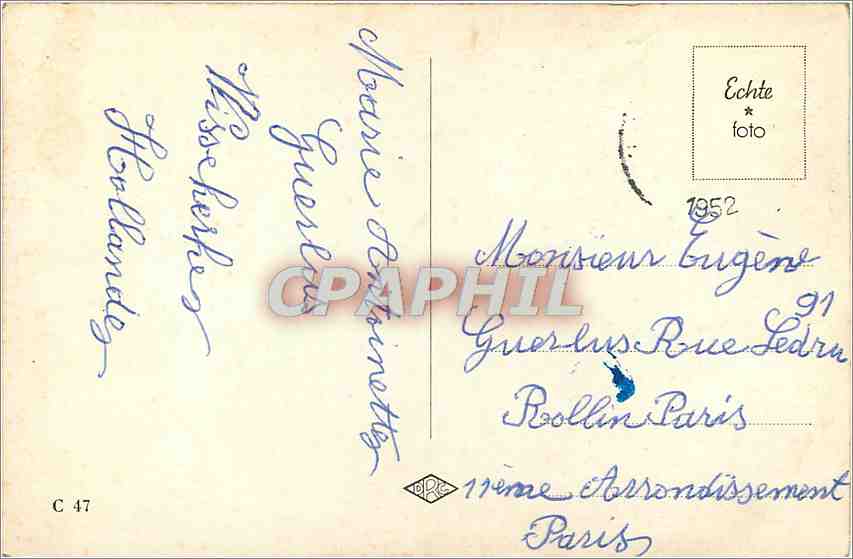 Marie Antoinette
Guerlus
Wisscherkes
Hollande
C 47
Echte
*
foto
1952
Monsieur Eugène
91
Guerlus Rue Ledru
Rollin Paris
11ème Arrondissement
Paris
DRC
CPAPHIL